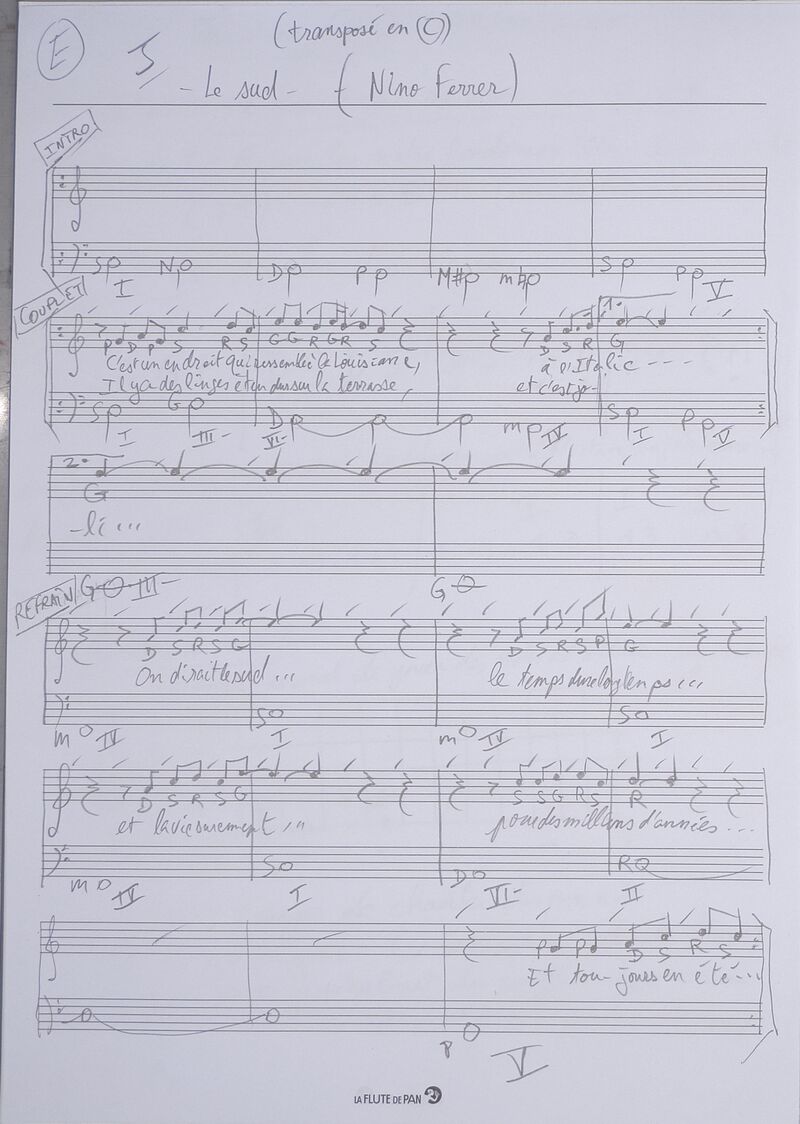 (transposé en C)
E
- Le sud - (Nino Ferrer)
INTRO
SP NP DP PP M#P m♮P SP PP
I V
COUPLET
1.
P D P S R S G G R G R S D S R G
C'est un endroit qui ressemble à la Louisiane, à l'Italie - - - -
Il y a des linges étendus sur la terrasse, et c'est jo-
SP GP DP mP SP PP
I III- VI- IV I V
2.
G
-li ...
REFRAIN
G III- G
D S R S G D S R S P G
On dirait le sud ... le temps dure longtemps ...
m IV S I m IV S I
D S R S G S S G R S R
et la vie surement ... pour des millions d'années ...
m IV S I D VI- R II
P P D S R S
Et tou-jours en été ...
P V
LA FLUTE DE PAN